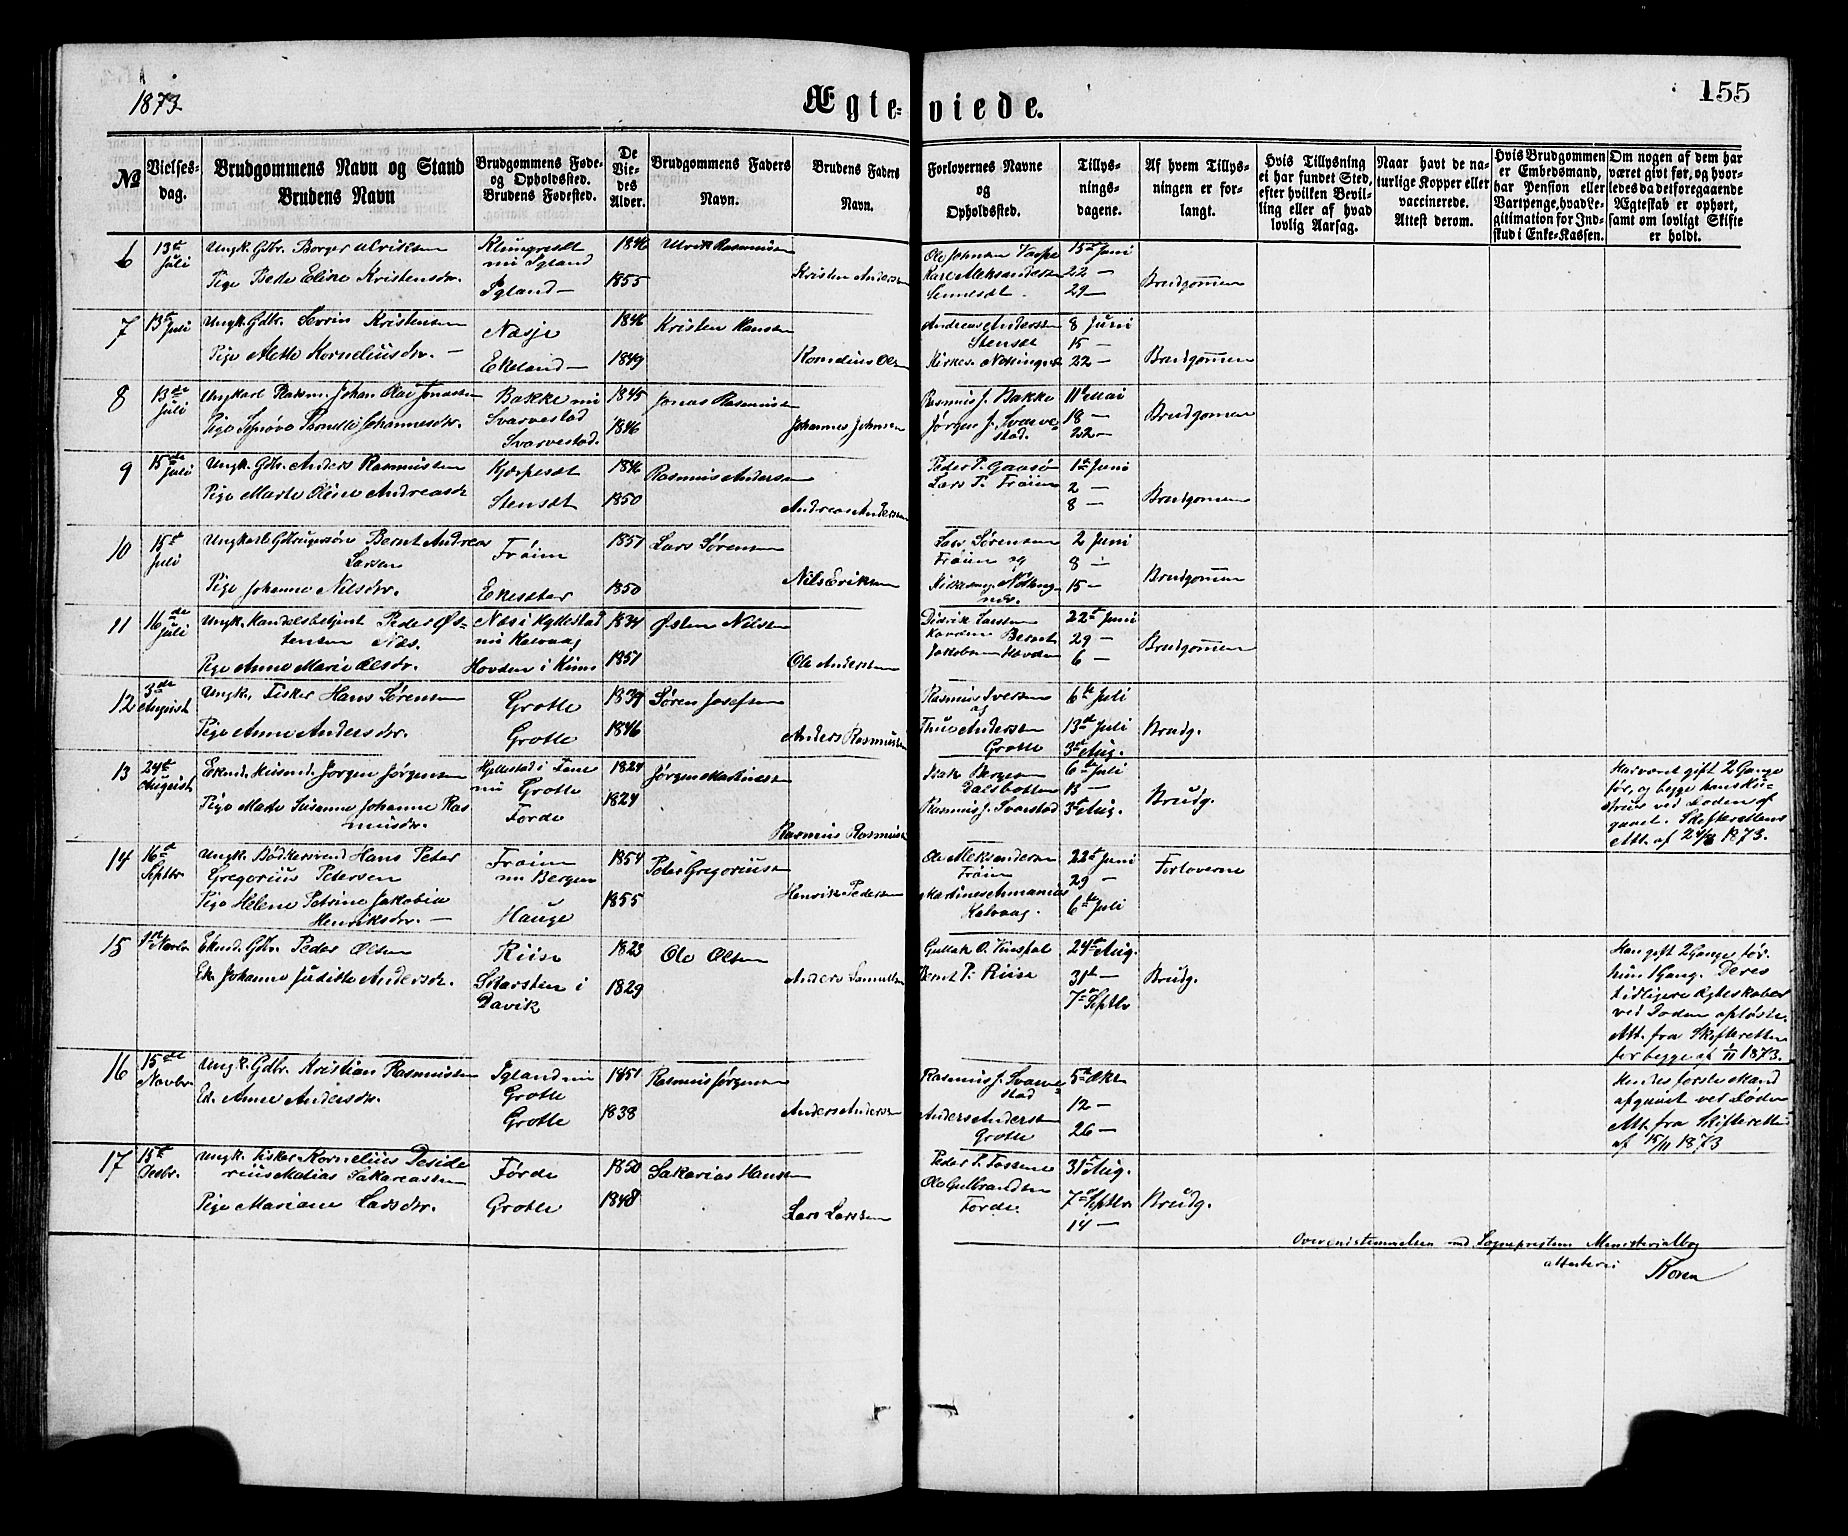 1873
Ægte-viede.
155
№
Vielses-dag.
Brudgommens Navn og Stand
Brudens Navn
Brudgommens Føde- og Opholdssted.
Brudens Fødested.
De Viedes Alder.
Brudgommens Faders Navn.
Brudens Faders Navn.
Forlovernes Navne og Opholdssted.
Tillysningsdagene.
Af hvem Tillysningen er forlangt.
Hvis Tillysning ei har fundet Sted, efter hvilken Bevilling eller af hvad lovlig Aarsag.
Naar havt de naturlige Kopper eller vaccinerede. Attest derom.
Hvis Brudgommen er Embedsmand, har Pension eller Vartpenge, hvad Legitimation for Indskud i Enke-Kassen.
Om nogen af dem har været givt før, og hvorledes da det foregaaende Ægteskab er ophørt, samt om lovligt Skifte er holdt.
6 13de Juli Ungk. Gdbr. Borger Ulriksen 1846 Ulrik Rasmussen Ole Johnsen 15de Juni
nu Igland Karl Aleksandersen 22 —
Pige Elise Kristensdr. Igland — 1855 Kristen Andersen 29 — Brudgommen
7 13de Juli Ungk. Gdbr. Kristensen Nasje 1846 Kristen Hansen Andreas Andersen 8 Juni
Stensæt 15 —
Pige Mette Korneliusdr. — Ekeland — 1849 Kornelius Ols 22 — Brudgommen
8 13de Juli Ungkarl Johan Olai Jonassen Bakke nu 1845 Jonas Rasmussen Rasmus J. Bakke 11te Mai
Svarvestad 18 — Brudgommen
Pige Johannesdr. Svarvestad. 1846 Johannes Johnsen Jørgen J. Svarvestad. 22 —
9 15de Juli Ungk. Gdbr. Anders Rasmussen 1846 Rasmus Andersen Peder P. 1ste Juni
Lars P. Frøien 2 —
Pige Marte Oline Andreasdr Stensæt 1850 Andreas Andersen 8 — Brudgommen
10 15de Juli Ungkarl Bernt Andreas Larsen Frøien 1851 Lars Sørensen Lars Sørensen 2 Juni
Frøien og 8 —
Pige Johanne Nilsdr. Ekesæter 1850 Nils Eriksen 15 — Brudgommen
11 16de Juli Ungk. Handelsbetjent Peder Østensen Næs. Næs i Hyllestad 1834 Østen Nilsen Didrik Larsen 22de Juni
nu Kalvaag Bernt 29 —
Pige Anne Marie Olsdr. Hovden i Kinn 1851 Ole Andersen Jakobsen Hovden 6 — Brudgommen
12 3de August Ungk. Fisker Hans Sørensen Grotle 1839 Søren Josefsen Rasmus Iversen og 6te Juli
Thue Andersen 13de Juli Brudg.
Pige Anne Andersdr. Grotle 1846 Anders Rasmussen Grotle 3die Aug.
13 24de August Enkmd. Husmd. Jørgen Jørgensen Hyllestad i 1824 Jørgen Martinsen 6te Juli
nu Grotle Dalsbotten 13 — Brudg.
Pige Marte Susanne Johanne Rasmusdr. Førde 1824 Rasmus Rasmussen Rasmus J. Svarstad 3die Aug.
Har været gift 2 Gange
før, og begge hans Hustruer ved Døden af
gaaet. Skifterettens
Att. af 1873.
14 16de Septbr. Ungk. Bødkersvend Hans Peter Gregorius Petersen Frøien 1854 Peter Gregoriussen Ole Aleksandersen 22de Juni
nu Bergen Frøien 29 — Forloverne
Pige Helene Petrine Jakobia Henriksdr. — Hauge 1855 Henrik Pedersen Kalvaag. 6te Juli
15 1ste Novbr. Enkmd. Gdbr. Peder Olsen Riise 1823 Ole Olsen Gullak O. 24de Aug.
Ek. Johanne Juditte Andersdr. i Davik 1829 Anders Samuelsen Bernt P. Riise 31te — Brudg.
7de Septbr
Han gift 2 Gange før
hun 1 Gang. Deres
tidligere Ægteskaber
ved Døden opløste.
Att. fra Skifteretten
for begge af 1/11 1873.
16 15de Novbr. Ungk. Gdbr. Kristian Rasmussen Igland nu 1851 Rasmus Jørgensen Rasmus J. Svarvestad 5te Okt
Grotle 12 —
Ek. Anne Andersdr. Grotle 1838 Anders Andersen Anders Andersen Grotle 26 —
Hendes første Mand
afgaaet ved Døden
Att. fra Skifteretten
af 15/11 1873
17 15de Decbr. Ungk. Fisker Kornelius Desiderius Matias Sakariassen Førde 1850 Sakarias Hansen Peder P. 31te Aug.
Ole Gulbrandsen 7de Septbr Brudg.
Pige Mariane Larsdr. Grotle 1848 Lars Larsen Førde. 14 —
Overenstemmelsen med Sognepræstens Ministerialbog
attesterer
Koren